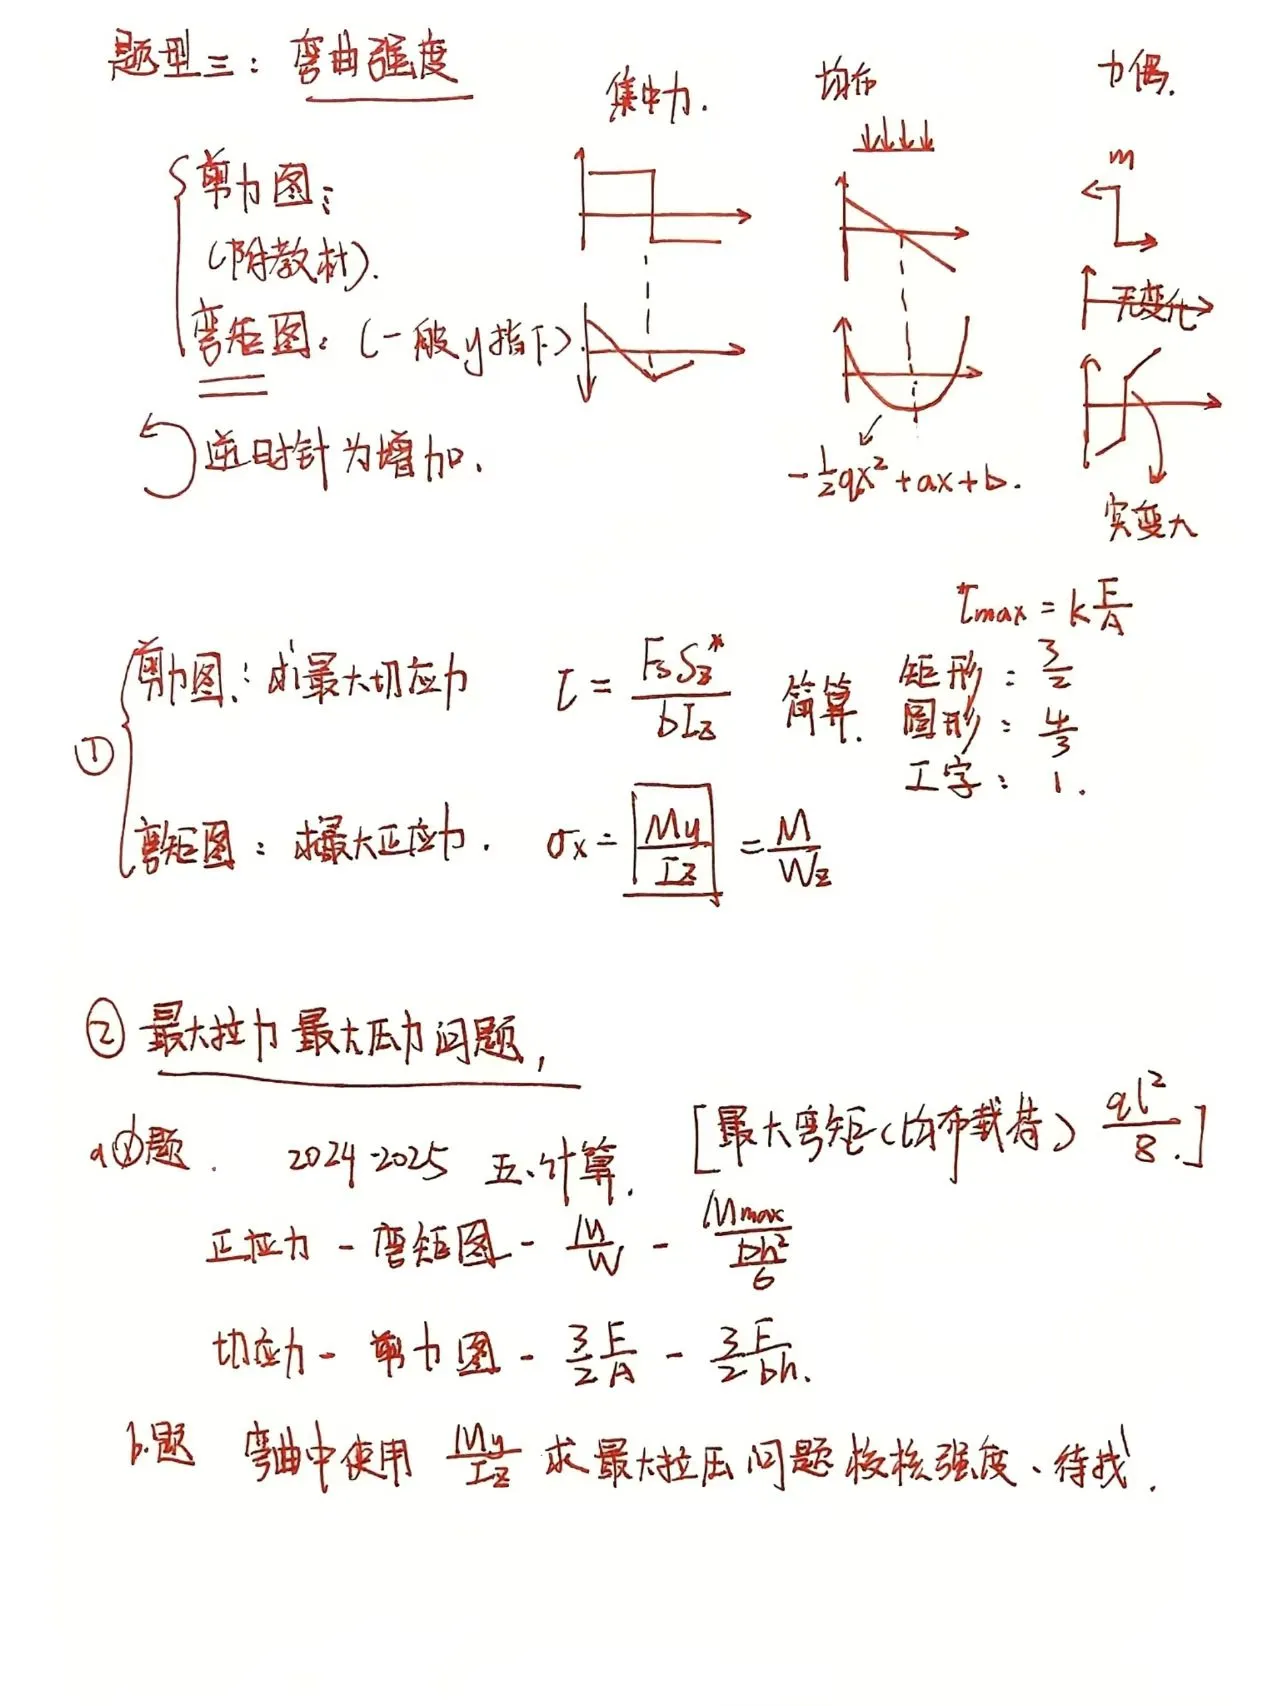 题型三：弯曲强度
集中力. 均布 力偶.
m
剪力图：
(附教材).
无变化
弯矩图：(一般y指下).
逆时针为增加.
-½qx²+ax+b.
突变大
τmax = k F/A
剪力图：求最大切应力 τ = FsSz*/bIz 简算. 矩形：3/2
圆形：4/3
工字：1.
①
弯矩图：求最大正应力. σx = My/Iz = M/Wz
② 最大拉力最大压力问题,
a题. 2024-2025 五、计算. [最大弯矩(均布载荷) ql²/8.]
正应力 - 弯矩图 - M/W - Mmax/(bh²/6)
切应力 - 剪力图 - 3/2 F/A - 3/2 F/bh.
b.题 弯曲中使用 My/Iz 求最大拉压问题校核强度、待找.